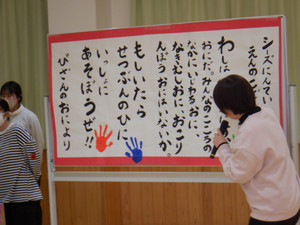 シーズにんてい
えんのこど
わしは
おにだ。みんなのこころの
なかに、いじわるおに、
なきむしおに、おこり
んぼうおにはいないか。
もしいたら
せつぶんのひに
いっしょに
あそぼうぜ!!
びざんのおにより